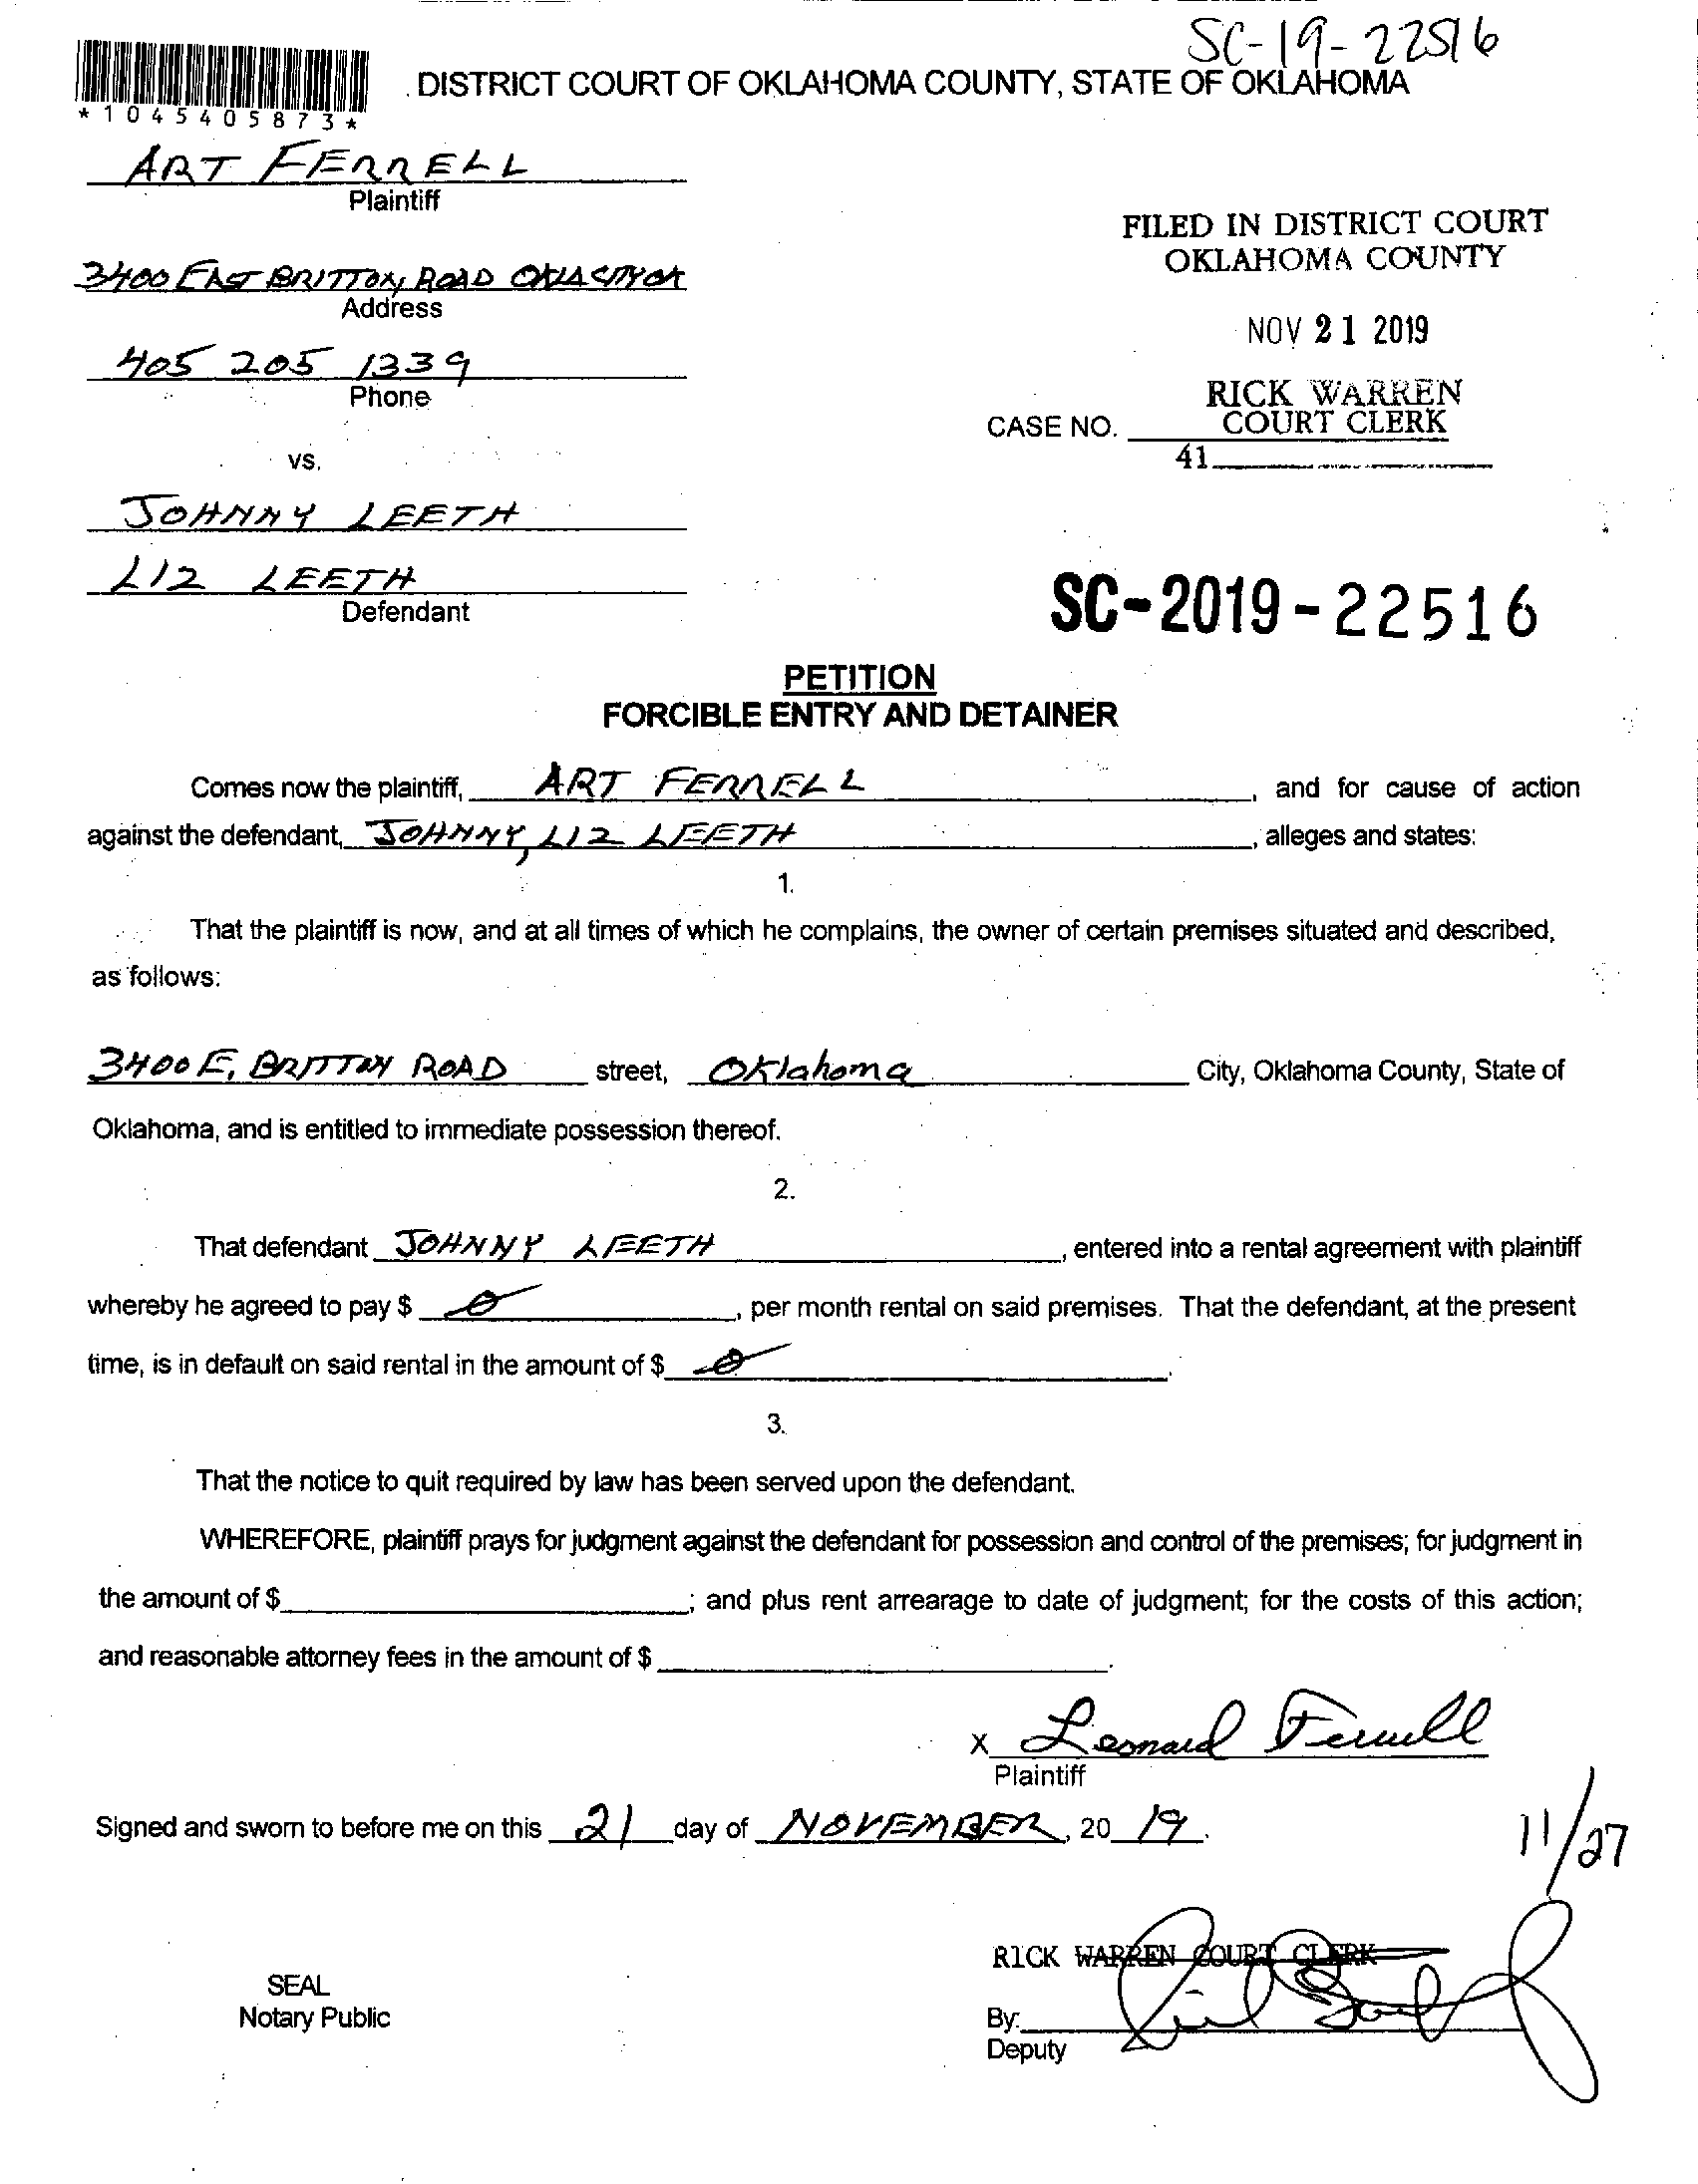 SC-19-22516
DISTRICT COURT OF OKLAHOMA COUNTY, STATE OF OKLAHOMA
*1045405873*
ART FERRELL
Plaintiff
FILED IN DISTRICT COURT
OKLAHOMA COUNTY
3400 EAST BRITTON ROAD OKLA CITY OK
Address
NOV 21 2019
405 205 1339
Phone
RICK WARREN
COURT CLERK
CASE NO.
41
vs.
JOHNNY LEETH
LIZ LEETH
Defendant
SC-2019-22516
PETITION
FORCIBLE ENTRY AND DETAINER
Comes now the plaintiff, ART FERRELL, and for cause of action
against the defendant, JOHNNY, LIZ LEETH, alleges and states:
1.
That the plaintiff is now, and at all times of which he complains, the owner of certain premises situated and described,
as follows:
3400 E, BRITTON ROAD street, Oklahoma City, Oklahoma County, State of
Oklahoma, and is entitled to immediate possession thereof.
2.
That defendant JOHNNY LEETH, entered into a rental agreement with plaintiff
whereby he agreed to pay $ 0, per month rental on said premises. That the defendant, at the present
time, is in default on said rental in the amount of $ 0.
3.
That the notice to quit required by law has been served upon the defendant.
WHEREFORE, plaintiff prays for judgment against the defendant for possession and control of the premises; for judgment in
the amount of $; and plus rent arrearage to date of judgment; for the costs of this action;
and reasonable attorney fees in the amount of $.
X Leonard Ferrell
Plaintiff
Signed and sworn to before me on this 21 day of NOVEMBER, 20 19.
11/27
RICK WARREN COURT CLERK
SEAL
Notary Public
By:
Deputy